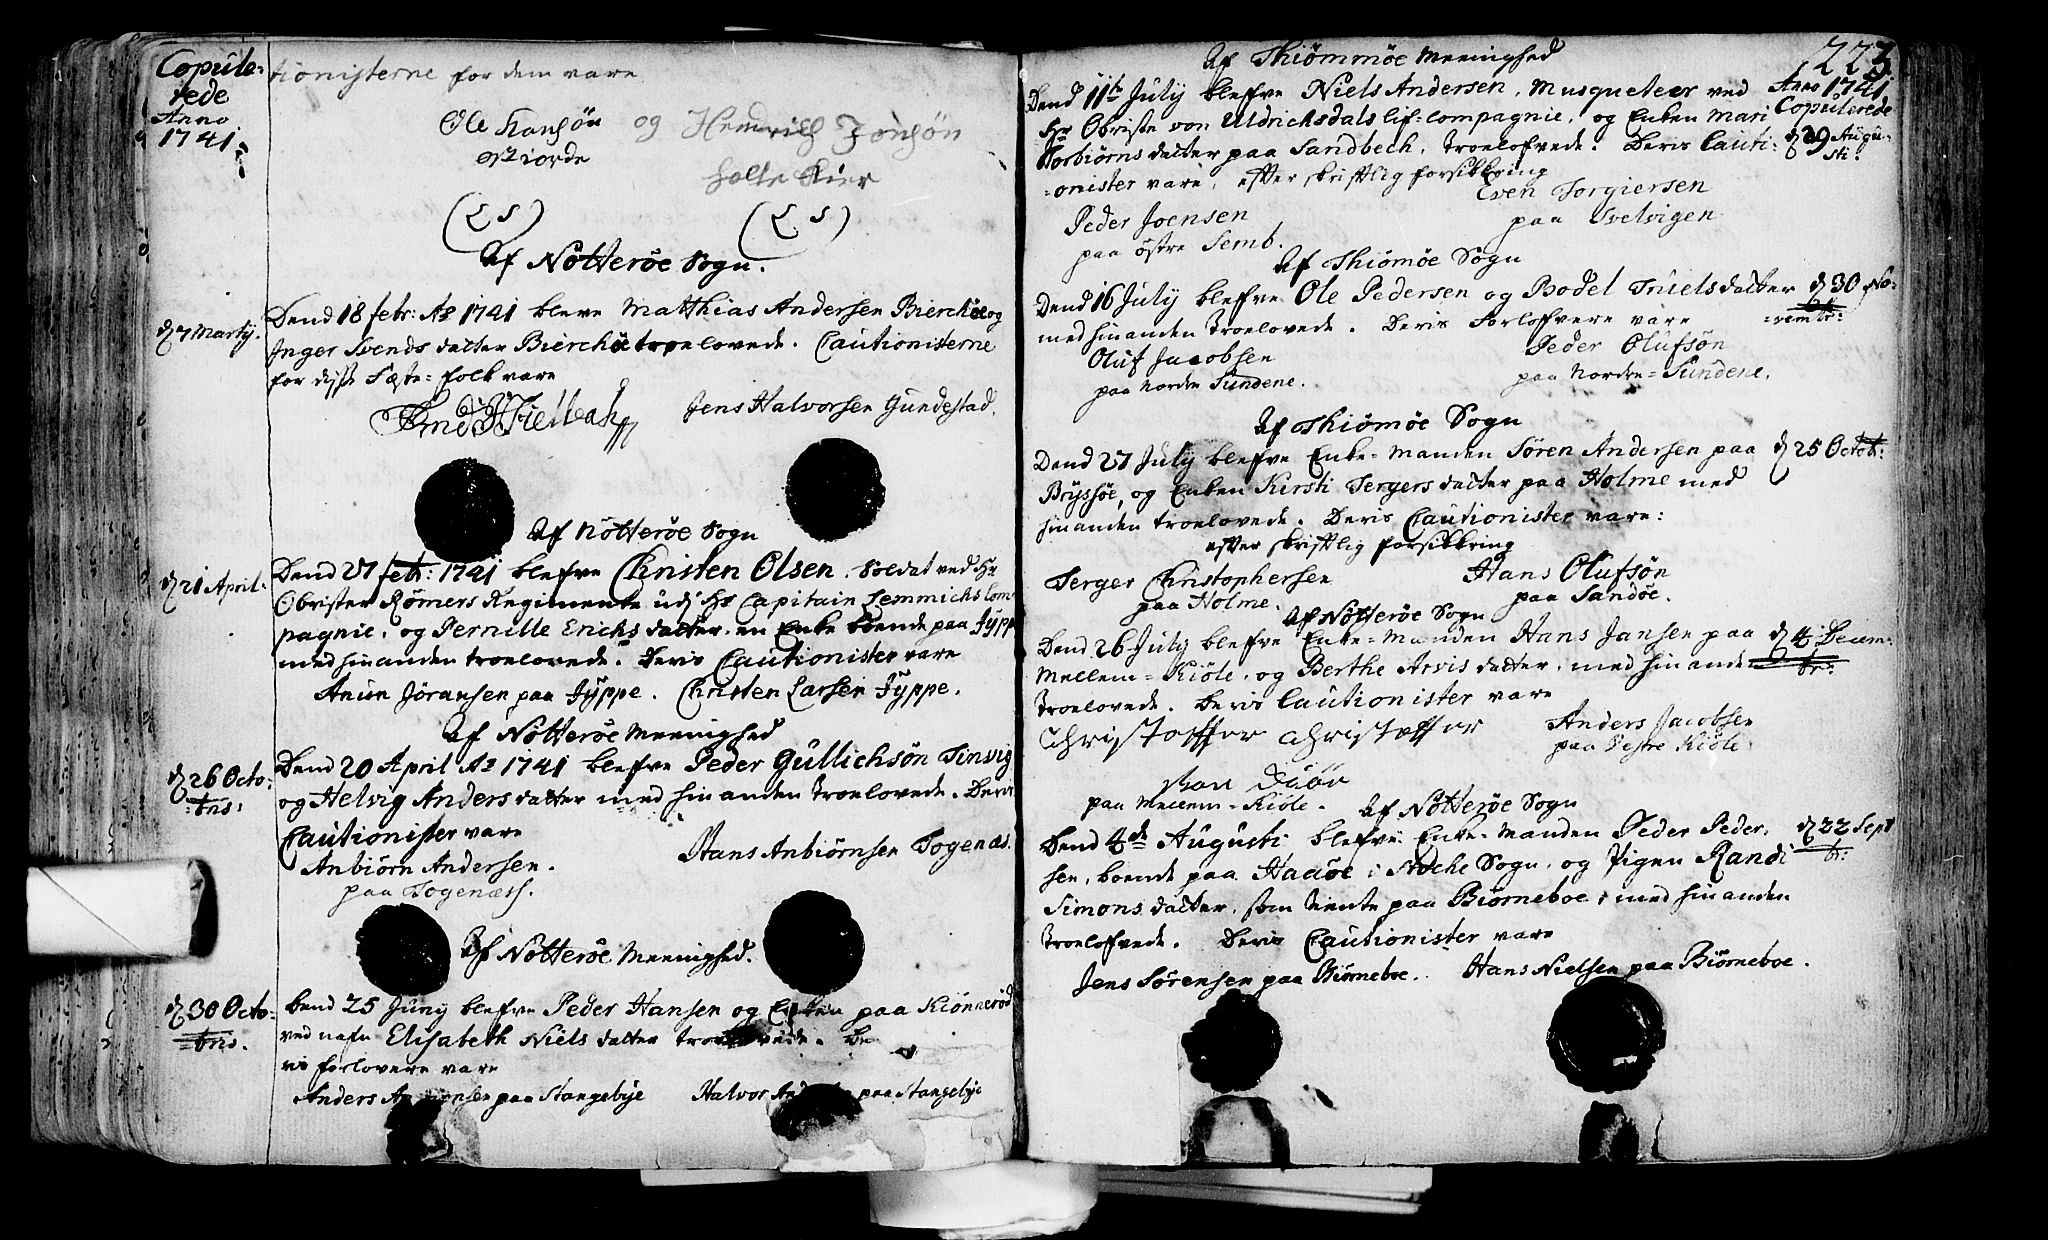 Copule-
rede
Anno
1741.
tionisterne for dem vare
Ole Hansøn og Hemrich Jonsøn
holte Kier
(L S) (L S)
Af Nötterøe Sogn.
d 7 Martij.
Dend 18 febr: Ao 1741 bleve Matthias Andersen Bierchöe og
Inger Svends datter Bierchöe troelovede. Cautionisterne
for disse Fæste-folk vare
Jens Halvorsen Gundestad.
Af Nötterøe Sogn
d 21 April.
Dend 27 febr: 1741 bleffve Christen Olsen, Soldat ved Hr
Obrister Römers Regimente udj Hr Capitain Lemmichs Com-
pagnie, og Pernille Erichs datter, en Enke boende paa Jÿppe
med hinanden troelovede. Deris Cautionister vare
Anion Jöransen paa Jÿppe. Christen Larsen Jÿppe.
Af Nötterøe Meenighed
d 26 Octo-
bris:
Dend 20 April Ao 1741 bleffve Peder Gullichsön Tinvig
og Helvig Anders datter med hinanden troelovede. Deris
Cautionister vare
Anbiörn Andersen. Hans Anbiörnsen Togenæs.
paa Togenæss.
Af Nötterøe Meenighed.
d 30 Octo-
bris.
Dend 25 Junij bleffve Peder Hansen og Enken paa Kiönneröd
ved nafn Elisabeth Niels datter troelovede. De-
ris forlovere vare
Anders paa Stangebÿe Halvor paa Stangebÿe
223.
Af Thiømmøe Meenighed
Anno 1741
Copulerede
d 29 Augu-
sti.
Dend 11te July bleffve Niels Andersen, Musqueteer ved
Hr Obriste von Uldrichsdals lif-compagnie, og Enken Mari
Torbiörns datter paa Sandbech, troelofvede. Deris Cauti-
onister vare, efter skriftlig forsikkring
Peder Joensen Even Torgiersen
paa östre Semb. paa Svelvigen
Af Thiömøe Sogn
d 30 No-
vembr:
Dend 16 July bleffve Ole Pedersen og Bodel Truels datter
med hinanden troelovede. Deris Forloffvere vare
Oluf Jacobsen Peder Olufsön
paa Norden Sundene. paa Norden-Sundene.
Af Thiömøe Sogn
d 25 Octob:
Dend 27 July bleffve Enke-Manden Sören Andersen paa
Brÿssöe, og Enken Kirsti Jergers datter paa Holme med
hinanden troelovede. Deris Cautionister vare:
efter skriftlig forsikkring
Jerger Christophersen Hans Olufsön
paa Holme. paa Sandöe.
Af Nötterøe Sogn
d 4 Decem-
br:
Dend 26 July bleffve Enke-Manden Hans Jansen paa
Mellem-Kiöle, og Berthe Arvis datter, med hinanden
troelovede. Deris Cautionister vare
Christoffer Christoffer Anders Jacobsen
paa Vestre Kiöle
paa Mellem-Kiöle.
Af Nötterøe Sogn
d 22 Sept
br:
Dend 4de Augusti bleffve Enke-Manden Peder Peder-
sen, boende paa Haaöe i Stöche Sogn, og Pigen Randi
Simons datter, som tiente paa Biörneboe, med hinanden
troeloffvede. Deris Cautionister vare
Jens Sörensen paa Biörneboe. Hans Nielsen paa Biörneboe.